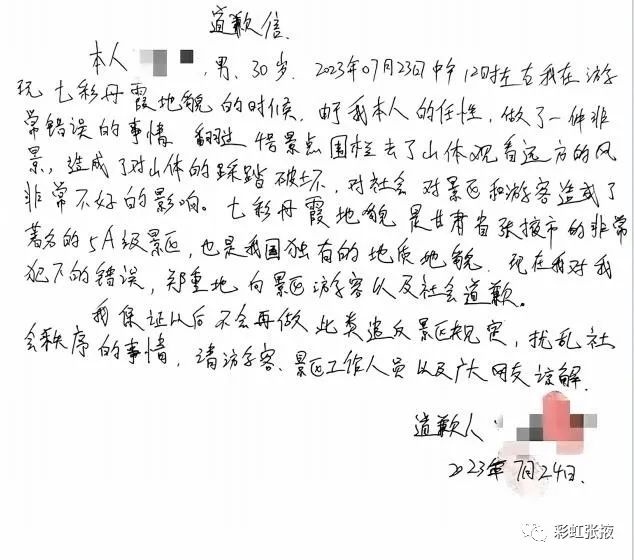 道歉信
本人 ,男、30岁. 2023年07月23日中午12时左右我在游
玩七彩丹霞地貌的时候,由于我本人的任性,做了一件非
常错误的事情 翻过 景点围栏去了山体观看远方的风
景,造成了对山体的踩踏破坏,对社会对景区和游客造成了
非常不好的影响。七彩丹霞地貌是甘肃省张掖市的非常
著名的5A级景区,也是我国独有的地质地貌.现在我对我
犯下的错误,郑重地向景区游客以及社会道歉。
我保证以后不会再做此类违反景区规定,扰乱社
会秩序的事情,请游客、景区工作人员以及广大网友谅解.
道歉人:
2023年7月24日.
彩虹张掖